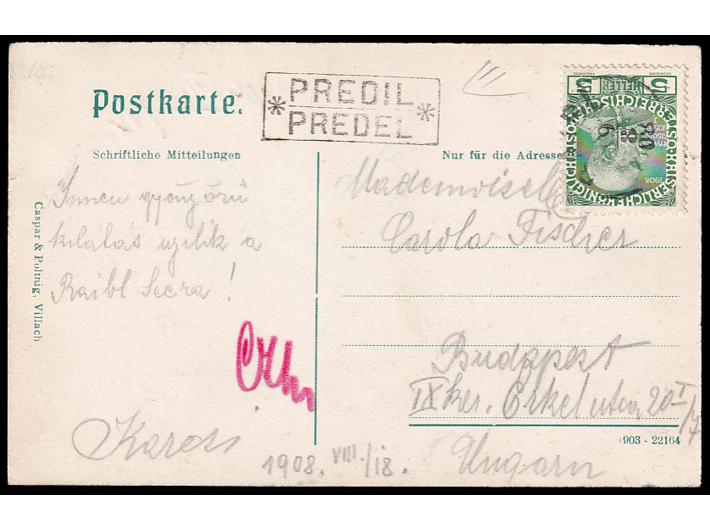 Postkarte.
* PREDIL *
PREDEL
Schriftliche Mitteilungen
Nur für die Adresse
5 HELLER 5
KAISERLICHE KÖNIGLICHE ÖSTERREICHISCHE POST
1908
Innen gyönyörű
kilátás nyílik a
Raibl Seera!
Mademoiselle
Carola Fischer
Budapest
IX ker. Erkel utca 20 I/7
Ungarn
1908. VIII./18.
903 - 22164
Caspar & Poltnig, Villach